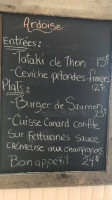 Ardoise
Entrées:
- Tataki de Thon 15$
- Ceviche pétoncles fraises
12$
Plats:
- Burger de Saumon
23$
- Cuisse Canard confite
Sur fettucines sauce
crémeuse aux champignons
Bon appétit 24$